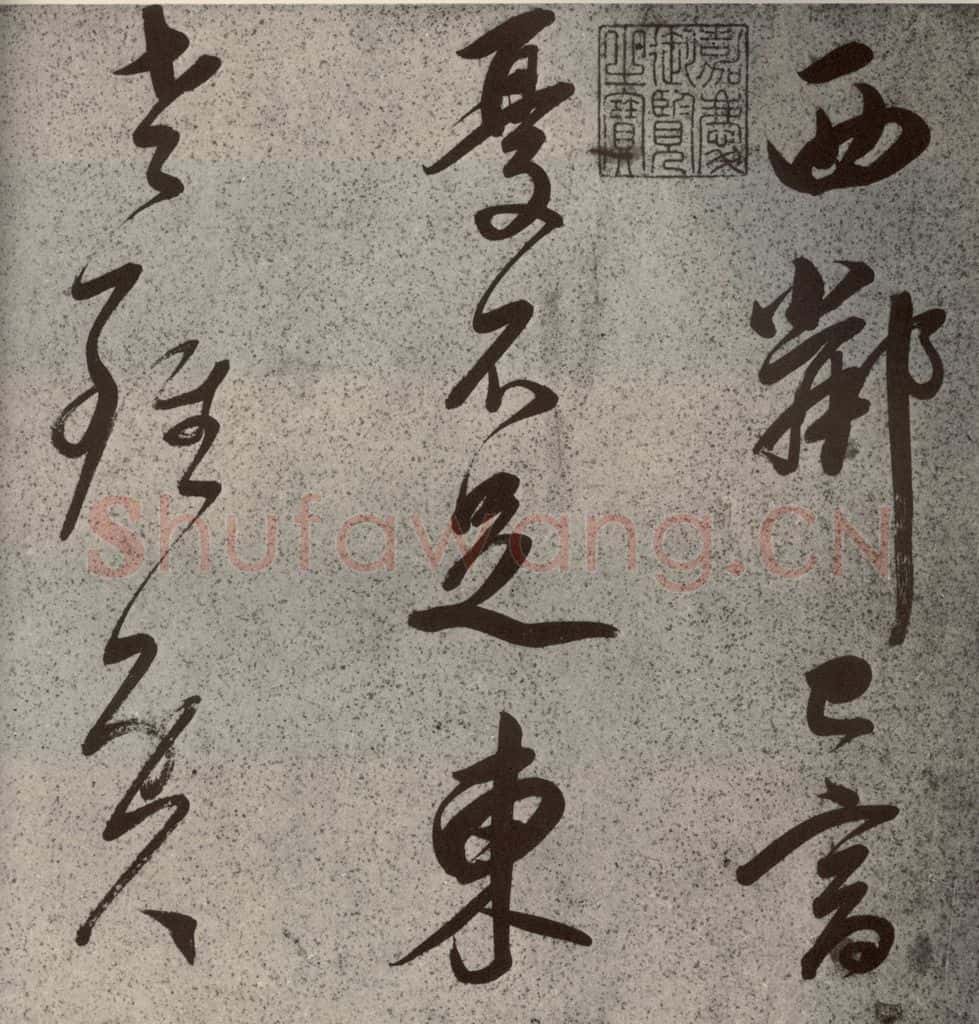 西鄰已富
憂不足東
老雖貧
嘉慶
御覽
之寶
Shufawang.CN